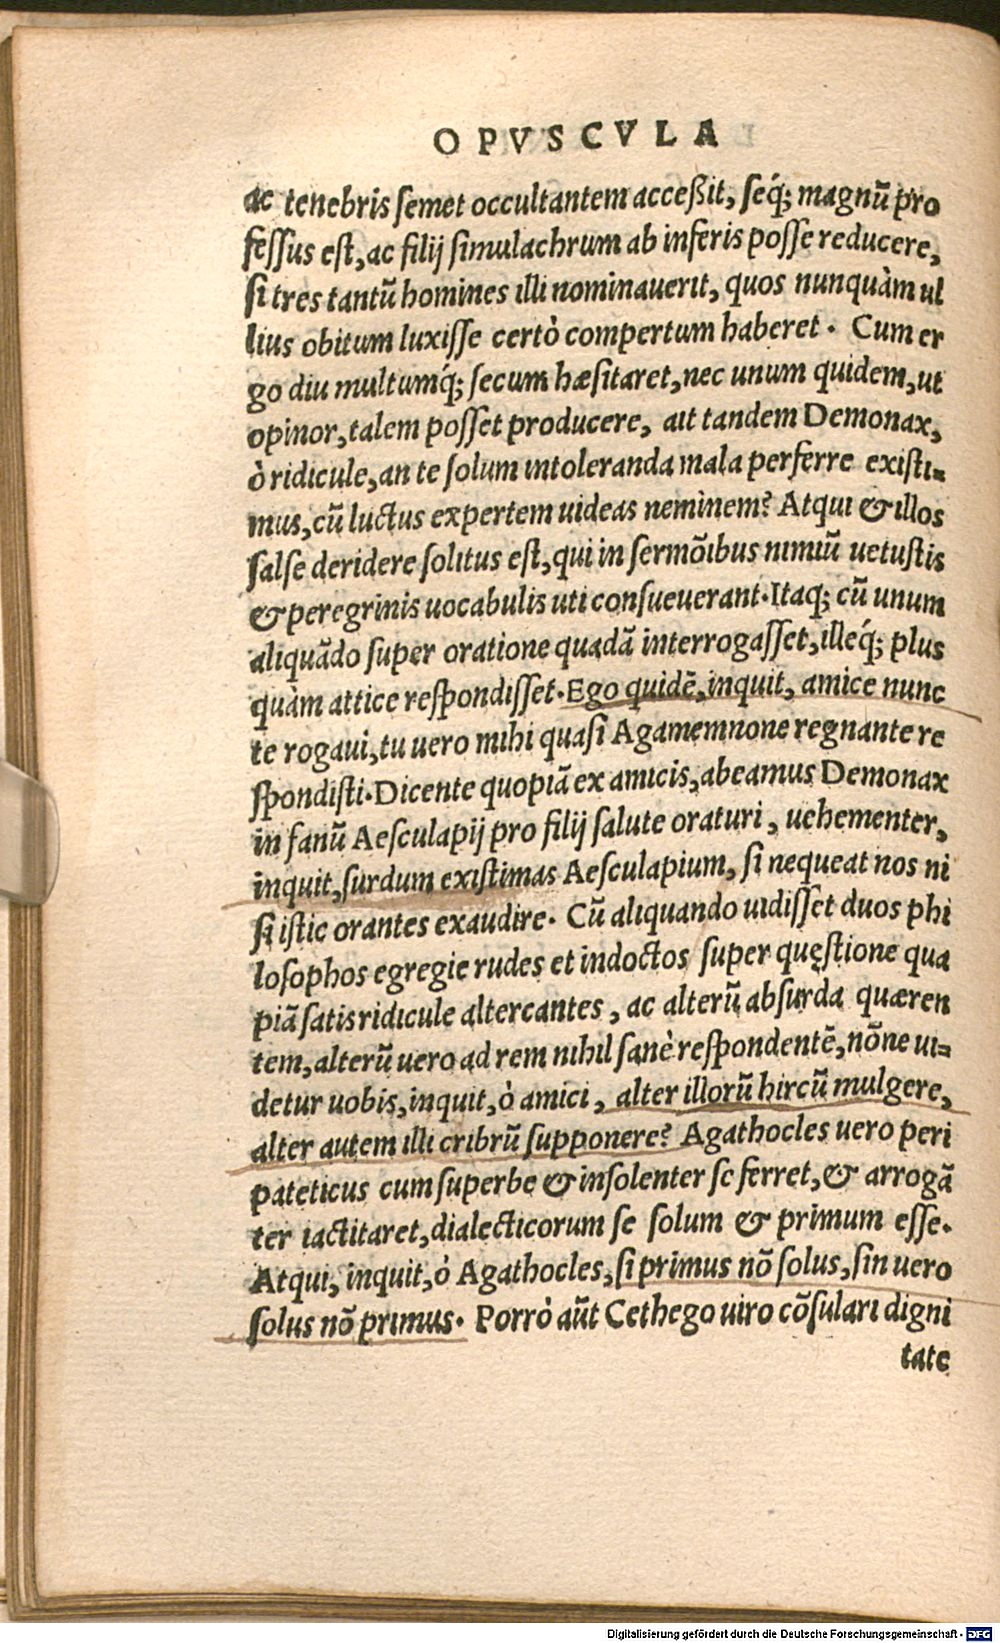 OPVSCVLA
ac tenebris semet occultantem acceßit, seq́; magnũ pro
fessus est, ac filij simulachrum ab inferis posse reducere,
si tres tantũ homines illi nominauerit, quos nunquàm ul
lius obitum luxisse certò compertum haberet. Cum er
go diu multumq́; secum hæsitaret, nec unum quidem, ut
opinor, talem posset producere, ait tandem Demonax,
ò ridicule, an te solum intoleranda mala perferre existi=
mus, cũ luctus expertem uideas neminem? Atqui & illos
salse deridere solitus est, qui in sermõibus nimiũ uetustis
& peregrinis uocabulis uti consueuerant. Itaq; cũ unum
aliquãdo super oratione quadã interrogasset, illeq́; plus
quàm attice respondisset. Ego quidẽ, inquit, amice nunc
te rogaui, tu uero mihi quasi Agamemnone regnante re
spondisti. Dicente quopiã ex amicis, abeamus Demonax
in fanũ Aesculapij pro filij salute oraturi, uehementer,
inquit, surdum existimas Aesculapium, si nequeat nos ni
si istic orantes exaudire. Cũ aliquando uidisset duos phi
losophos egregie rudes et indoctos super quęstione qua
piã satis ridicule altercantes, ac alterũ absurda quæren
tem, alterũ uero ad rem nihil sanè respondentẽ, nõne ui=
detur uobis, inquit, ò amici, alter illorũ hircũ mulgere,
alter autem illi cribrũ supponere? Agathocles uero peri
pateticus cum superbe & insolenter se ferret, & arrogã
ter iactitaret, dialecticorum se solum & primum esse.
Atqui, inquit, ò Agathocles, si primus nõ solus, sin uero
solus nõ primus. Porrò aũt Cethego uiro cõsulari digni
tate
Digitalisierung gefördert durch die Deutsche Forschungsgemeinschaft - DFG